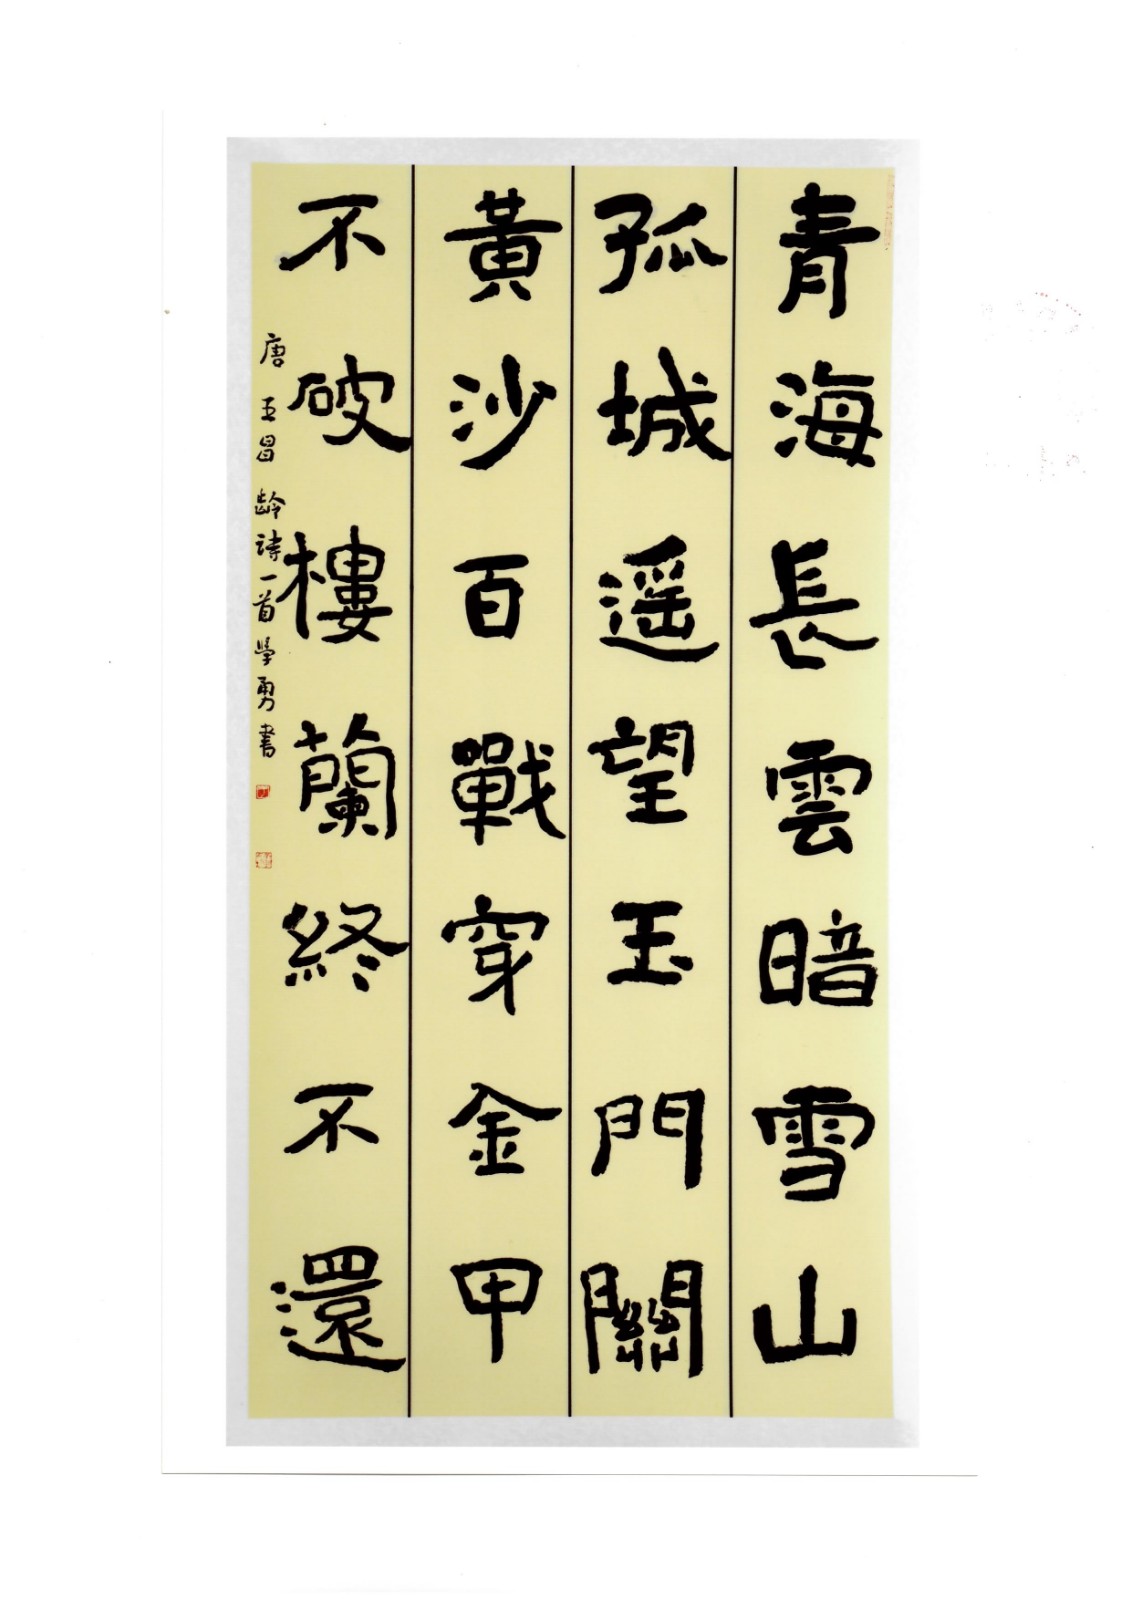 青海長雲暗雪山
孤城遥望玉門關
黃沙百戰穿金甲
不破樓蘭終不還
唐王昌齡詩一首學勇書